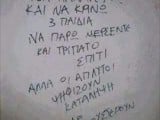 ΚΑΙ ΝΑ ΚΑΝΩ
3 ΠΑΙΔΙΑ
ΝΑ ΠΑΡΩ ΜΕΡΣΕΝΤΕ
ΚΑΙ ΤΡΙΠΑΤΟ
ΣΠΙΤΙ
ΑΛΛΑ ΟΙ ΑΠΛΥΤΟΙ
ΨΗΦΙΖΟΥΝ
ΚΑΤΑΛΗΨΗ